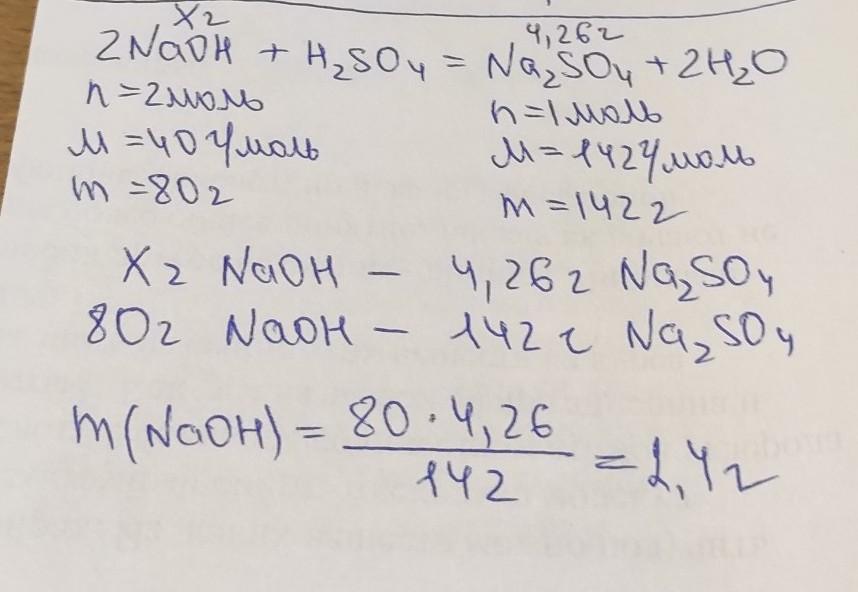 X г 4,26 г
2NaOH + H₂SO₄ = Na₂SO₄ + 2H₂O
n = 2 моль n = 1 моль
M = 40 г/моль M = 142 г/моль
m = 80 г m = 142 г
X г NaOH – 4,26 г Na₂SO₄
80 г NaOH – 142 г Na₂SO₄
m(NaOH) = 80 · 4,26 / 142 = 2,4 г